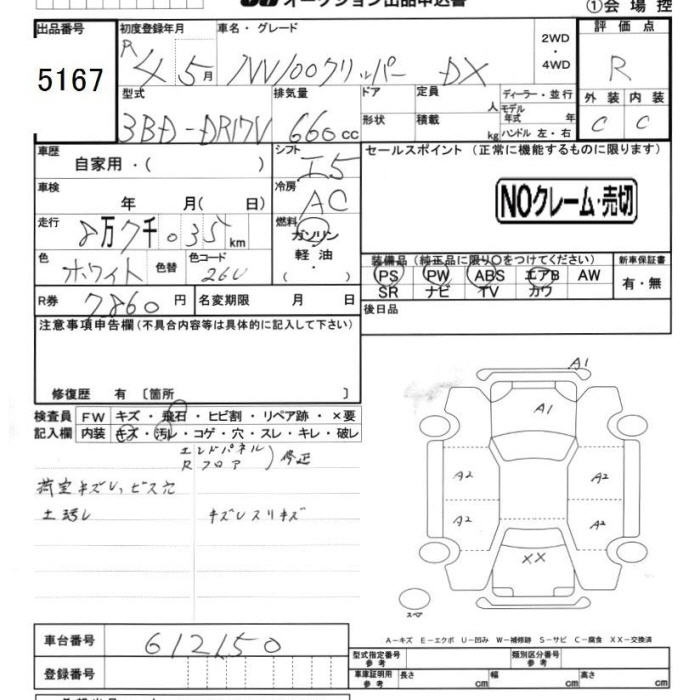 オークション出品申込書
①会場控
出品番号
5167
初度登録年月
R4 5月
車名・グレード
NV100クリッパー DX
2WD
・
4WD
評価点
R
外装 内装
C C
型式
3BD-DR17V
排気量
660cc
ドア
形状
定員
人
積載
kg
ディーラー・並行
モデル
年式 年
ハンドル 左・右
車歴
自家用・( )
シフト
I5
セールスポイント (正常に機能するものに限ります)
NOクレーム・売切
車検
年 月( 日)
冷房
AC
走行
8万7千035km
燃料
ガソリン
軽油
( ・ )
色
ホワイト
色替
色コード
26U
装備品 (純正品に限り○をつけてください)
新車保証書
PS PW ABS エアB AW
SR ナビ TV カワ
有・無
R券
7,860円
名変期限 月 日
後日品
注意事項申告欄(不具合内容等は具体的に記入して下さい)
修復歴 有 〔箇所 〕
検査員
記入欄
FW キズ・飛石・ヒビ割・リペア跡・×要
内装 キズ・汚レ・コゲ・穴・スレ・キレ・破レ
エンドパネル
Rフロア
)修正
荷室キズし、ビス穴
キズレスリキズ
A1
A1
A2
A2
A2
A2
XX
スペア
A-キズ E-エクボ U-凹み W-補修跡 S-サビ C-腐食 XX-交換済
車台番号
612150
登録番号
型式指定番号
参考
類別区分番号
参考
車庫証明用
参考
長さ cm
幅 cm
高さ cm